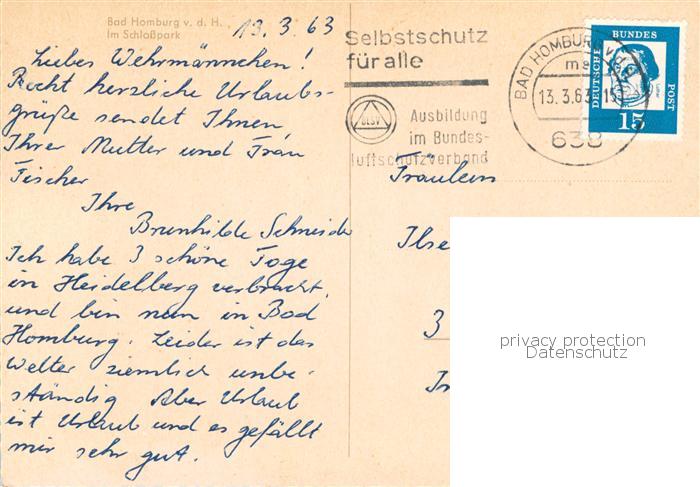 Bad Homburg v. d. H.
Im Schloßpark
13.3.63
Liebes Wehrmännchen!
Recht herzliche Urlaubs-
grüße sendet Ihnen,
Ihrer Mutter und Frau
Fischer
Ihre
Brunhilde Schneider
Ich habe 3 schöne Tage
in Heidelberg verbracht,
und bin nun in Bad
Homburg. Leider ist das
Wetter ziemlich unbe-
ständig Aber Urlaub
ist Urlaub und es gefällt
mir sehr gut.
Selbstschutz
für alle
Ausbildung
im Bundes-
luftschutzverband
BAD HOMBURG v.d.
13.3.63
638
DEUTSCHE BUNDES POST
15
Fräulein
Ilse
3
privacy protection
Datenschutz